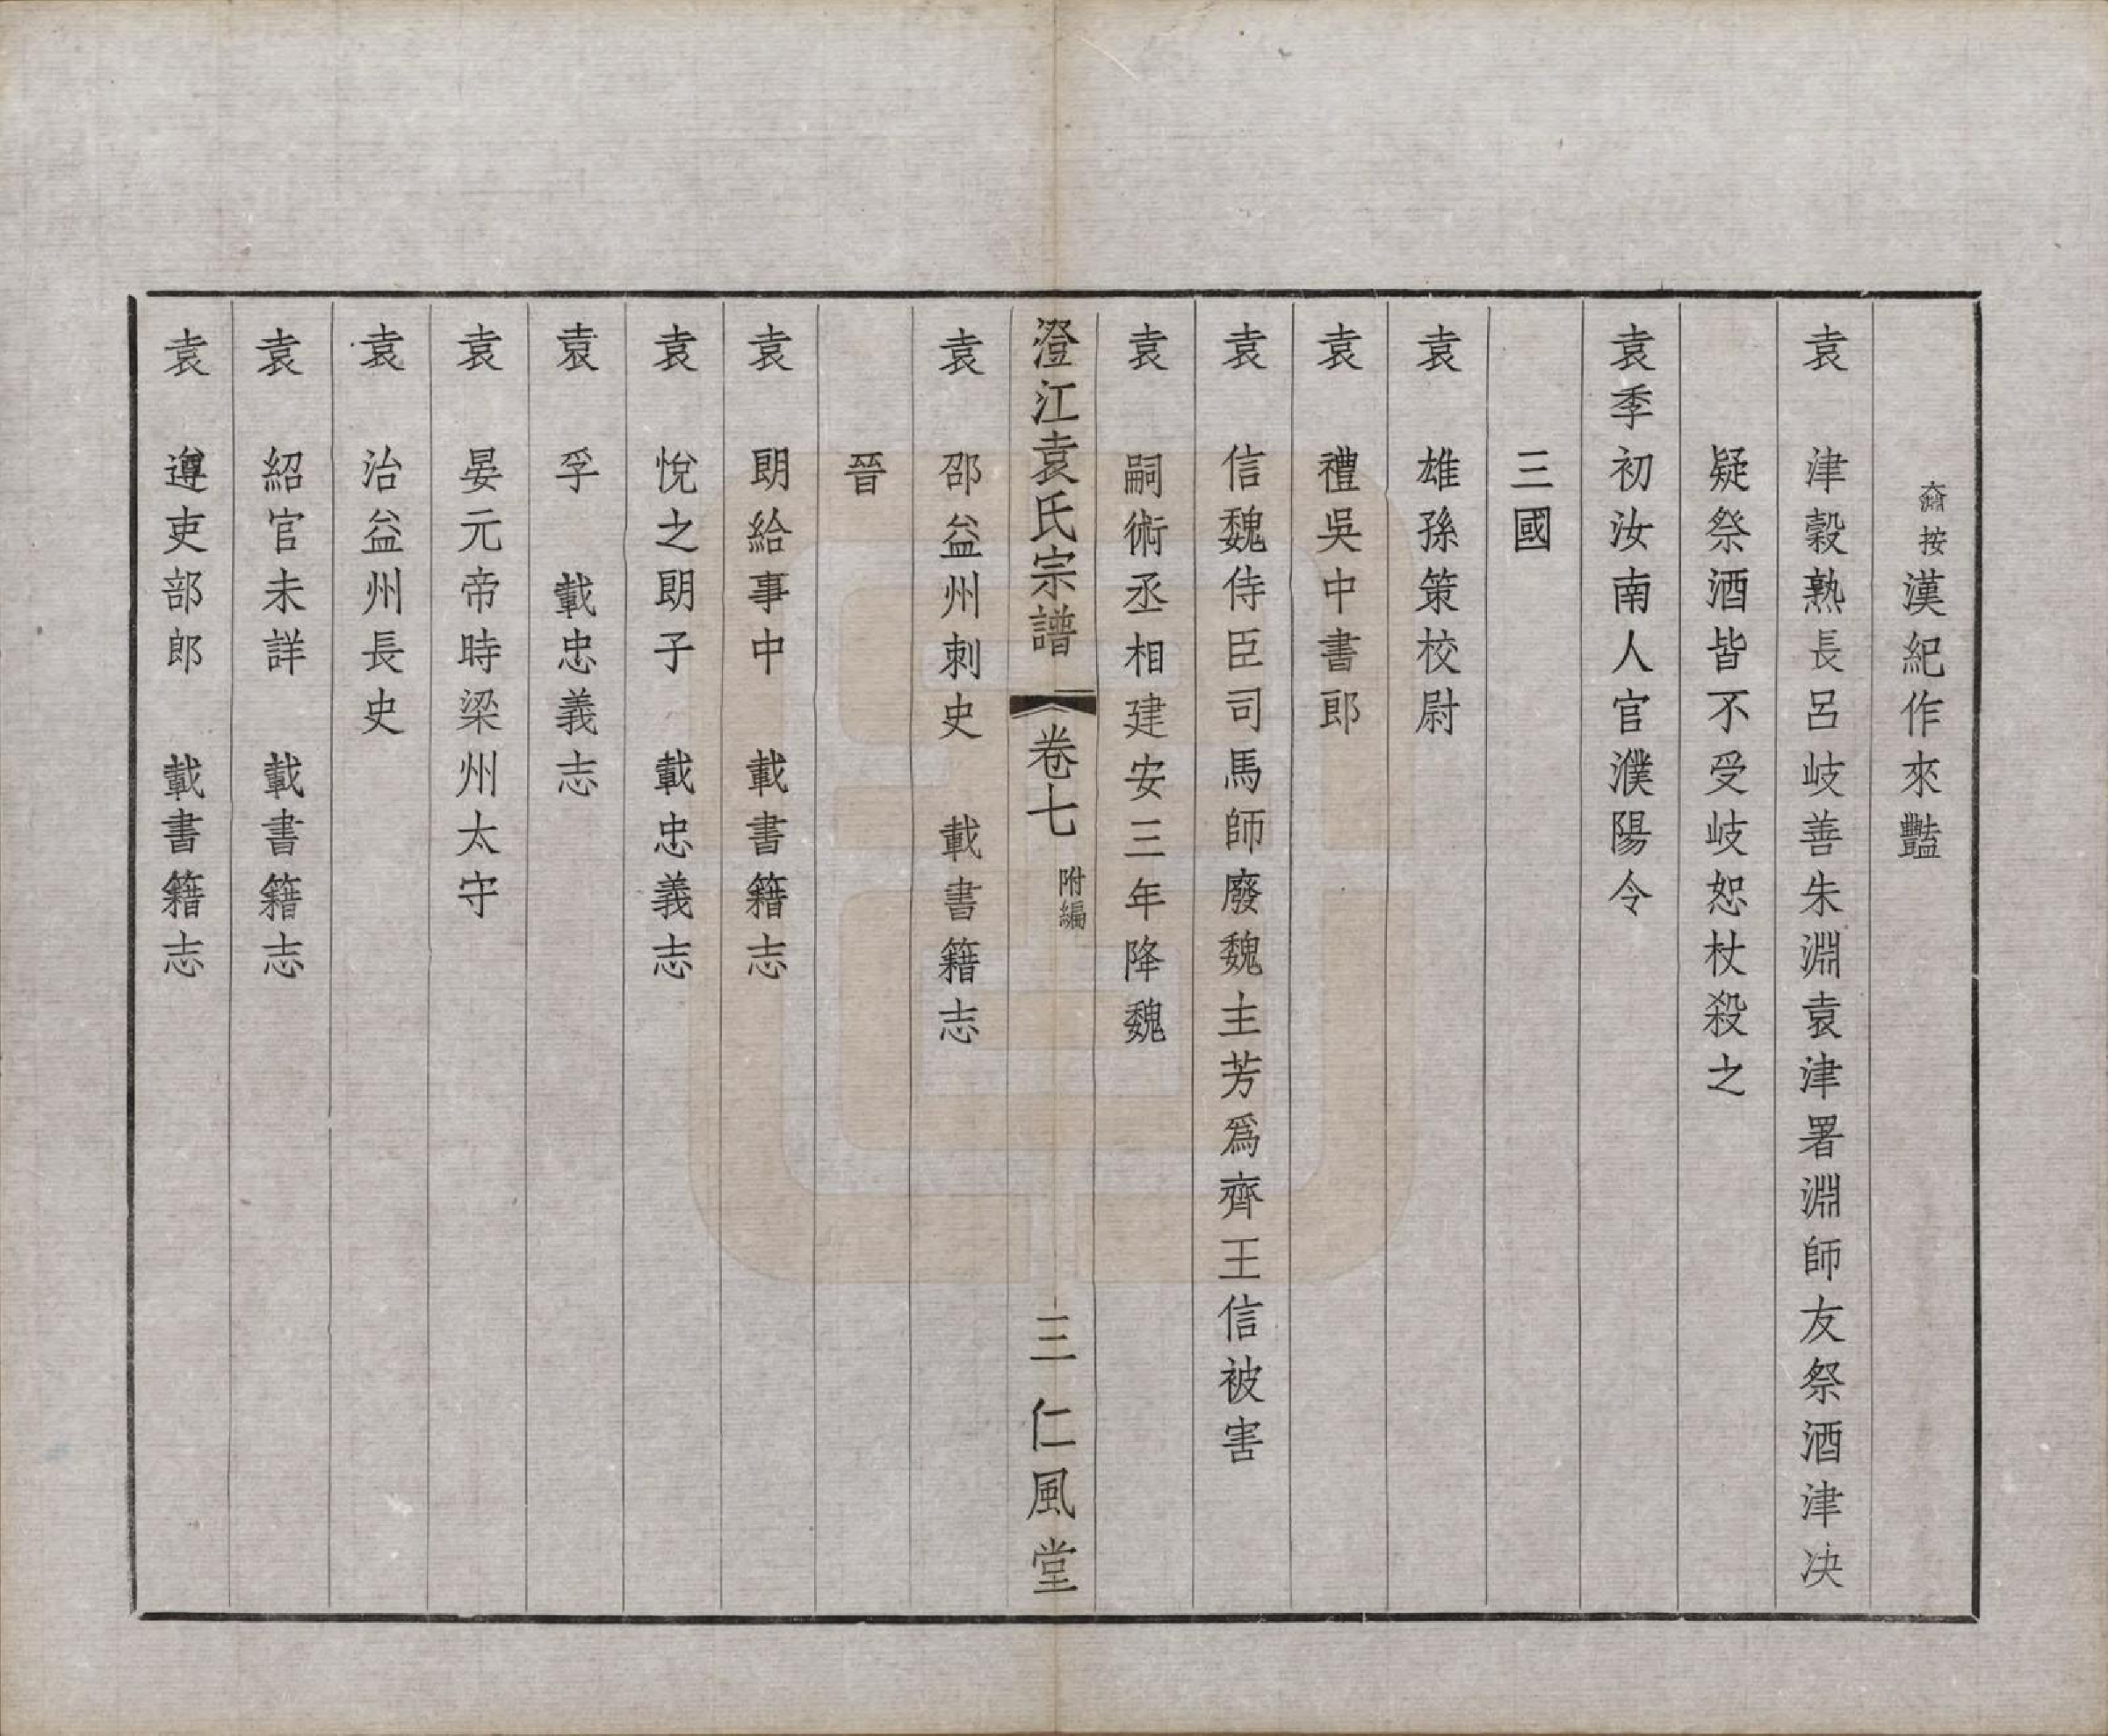 按漢紀作來豔
袁　津穀熟長呂岐善朱淵袁津署淵師友祭酒津决
疑祭酒皆不受岐恕杖殺之
袁季初汝南人官濮陽令
三國
袁　雄孫策校尉
袁　禮吳中書郎
袁　信魏侍臣司馬師廢魏主芳爲齊王信被害
袁　嗣術丞相建安三年降魏
澄江袁氏宗譜　卷七　附編　三　仁風堂
袁　邵益州刺史　載書籍志
晉
袁　朗給事中　載書籍志
袁　悅之朗子　載忠義志
袁　孚　載忠義志
袁　晏元帝時梁州太守
袁　治益州長史
袁　紹官未詳　載書籍志
袁　遵吏部郎　載書籍志